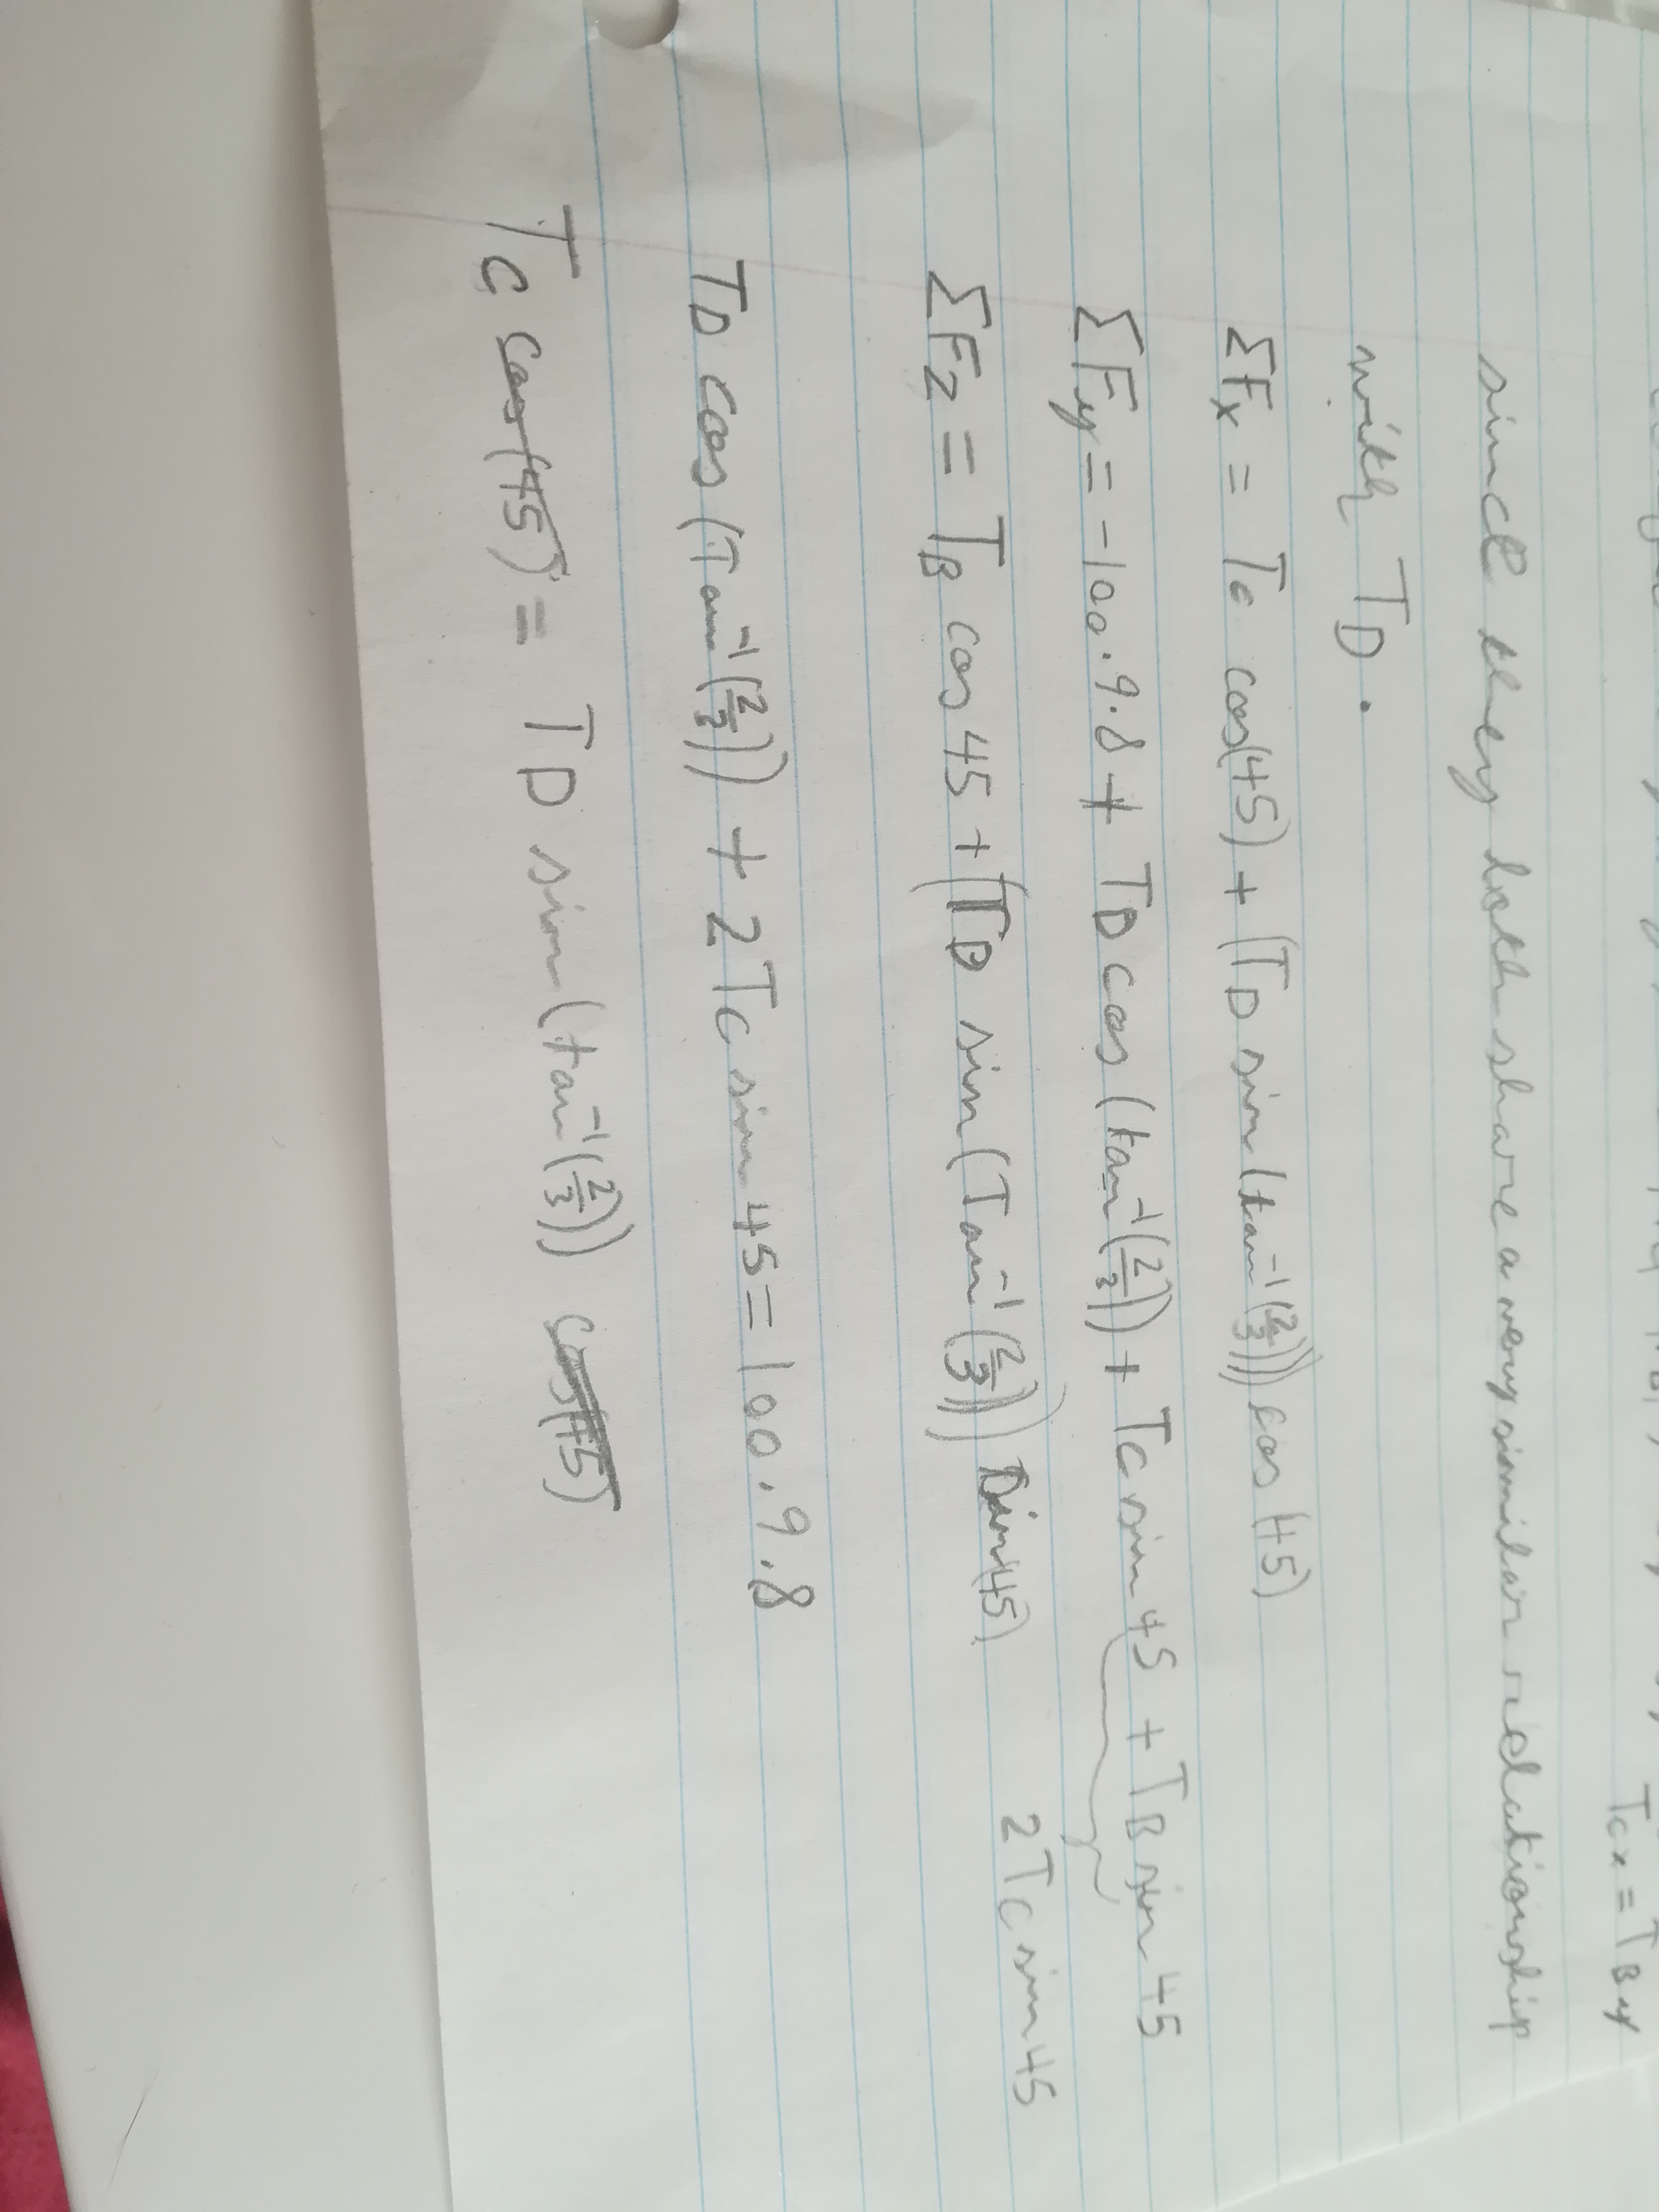 Tcx = TBy
since they both share a very similar relationship
with TD.
ΣFx = Tc cos(45) + (TD sin (tan⁻¹(2/3))) cos (45)
ΣFy = -100.9.8 + TD cos (tan⁻¹(2/3)) + TC sin 45 + TB sin 45
2TC sin 45
ΣFz = TB cos 45 + (TD sin (Tan⁻¹(2/3))) sin(45)
TD cos (Tan⁻¹(2/3)) + 2TC sin 45 = 100.9.8
TC cos(45) = TD sin (tan⁻¹(2/3)) cos(45)